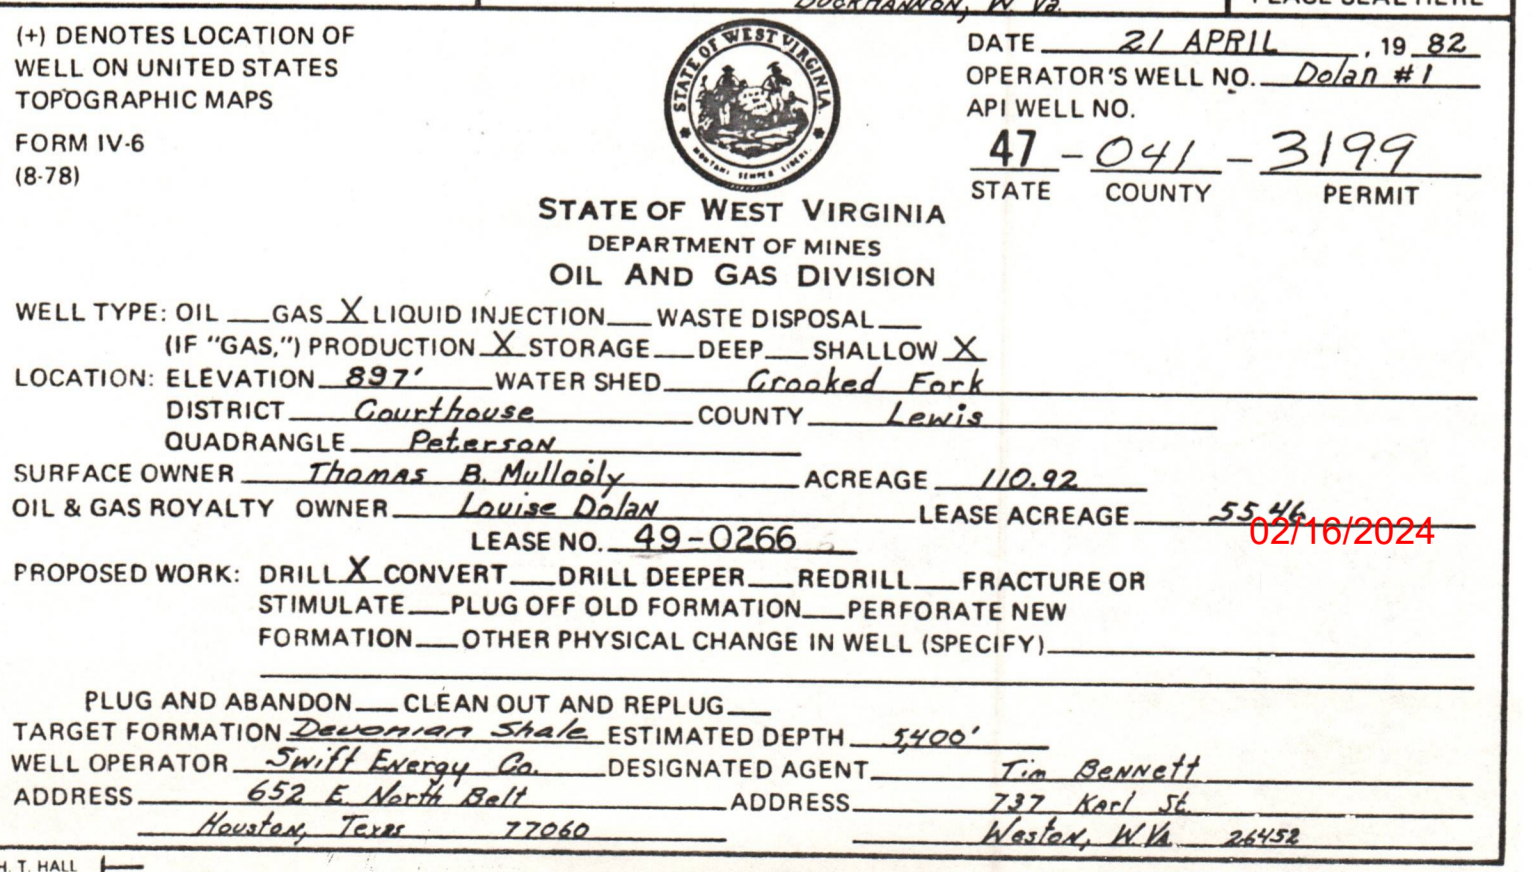 BUCKHANNON, W Va.
PLEASE SEAL HERE
(+) DENOTES LOCATION OF
WELL ON UNITED STATES
TOPOGRAPHIC MAPS
FORM IV-6
(8-78)
STATE OF WEST VIRGINIA
MONTANI SEMPER LIBERI
DATE 21 APRIL, 19 82
OPERATOR'S WELL NO. Dolan #1
API WELL NO.
47 - 041 - 3199
STATE COUNTY PERMIT
STATE OF WEST VIRGINIA
DEPARTMENT OF MINES
OIL AND GAS DIVISION
WELL TYPE: OIL ___ GAS X LIQUID INJECTION ___ WASTE DISPOSAL ___
(IF "GAS,") PRODUCTION X STORAGE ___ DEEP ___ SHALLOW X
LOCATION: ELEVATION 897' WATER SHED Crooked Fork
DISTRICT Courthouse COUNTY Lewis
QUADRANGLE Peterson
SURFACE OWNER Thomas B. Mullooly ACREAGE 110.92
OIL & GAS ROYALTY OWNER Louise Dolan LEASE ACREAGE 55.46
02/16/2024
LEASE NO. 49-0266
PROPOSED WORK: DRILL X CONVERT ___ DRILL DEEPER ___ REDRILL ___ FRACTURE OR
STIMULATE ___ PLUG OFF OLD FORMATION ___ PERFORATE NEW
FORMATION ___ OTHER PHYSICAL CHANGE IN WELL (SPECIFY) ___
PLUG AND ABANDON ___ CLEAN OUT AND REPLUG ___
TARGET FORMATION Devonian Shale ESTIMATED DEPTH 5,400'
WELL OPERATOR Swift Energy Co. DESIGNATED AGENT Tim Bennett
ADDRESS 652 E. North Belt ADDRESS 737 Karl St.
Houston, Texas 77060 Weston, W.Va. 26452
H. T. HALL